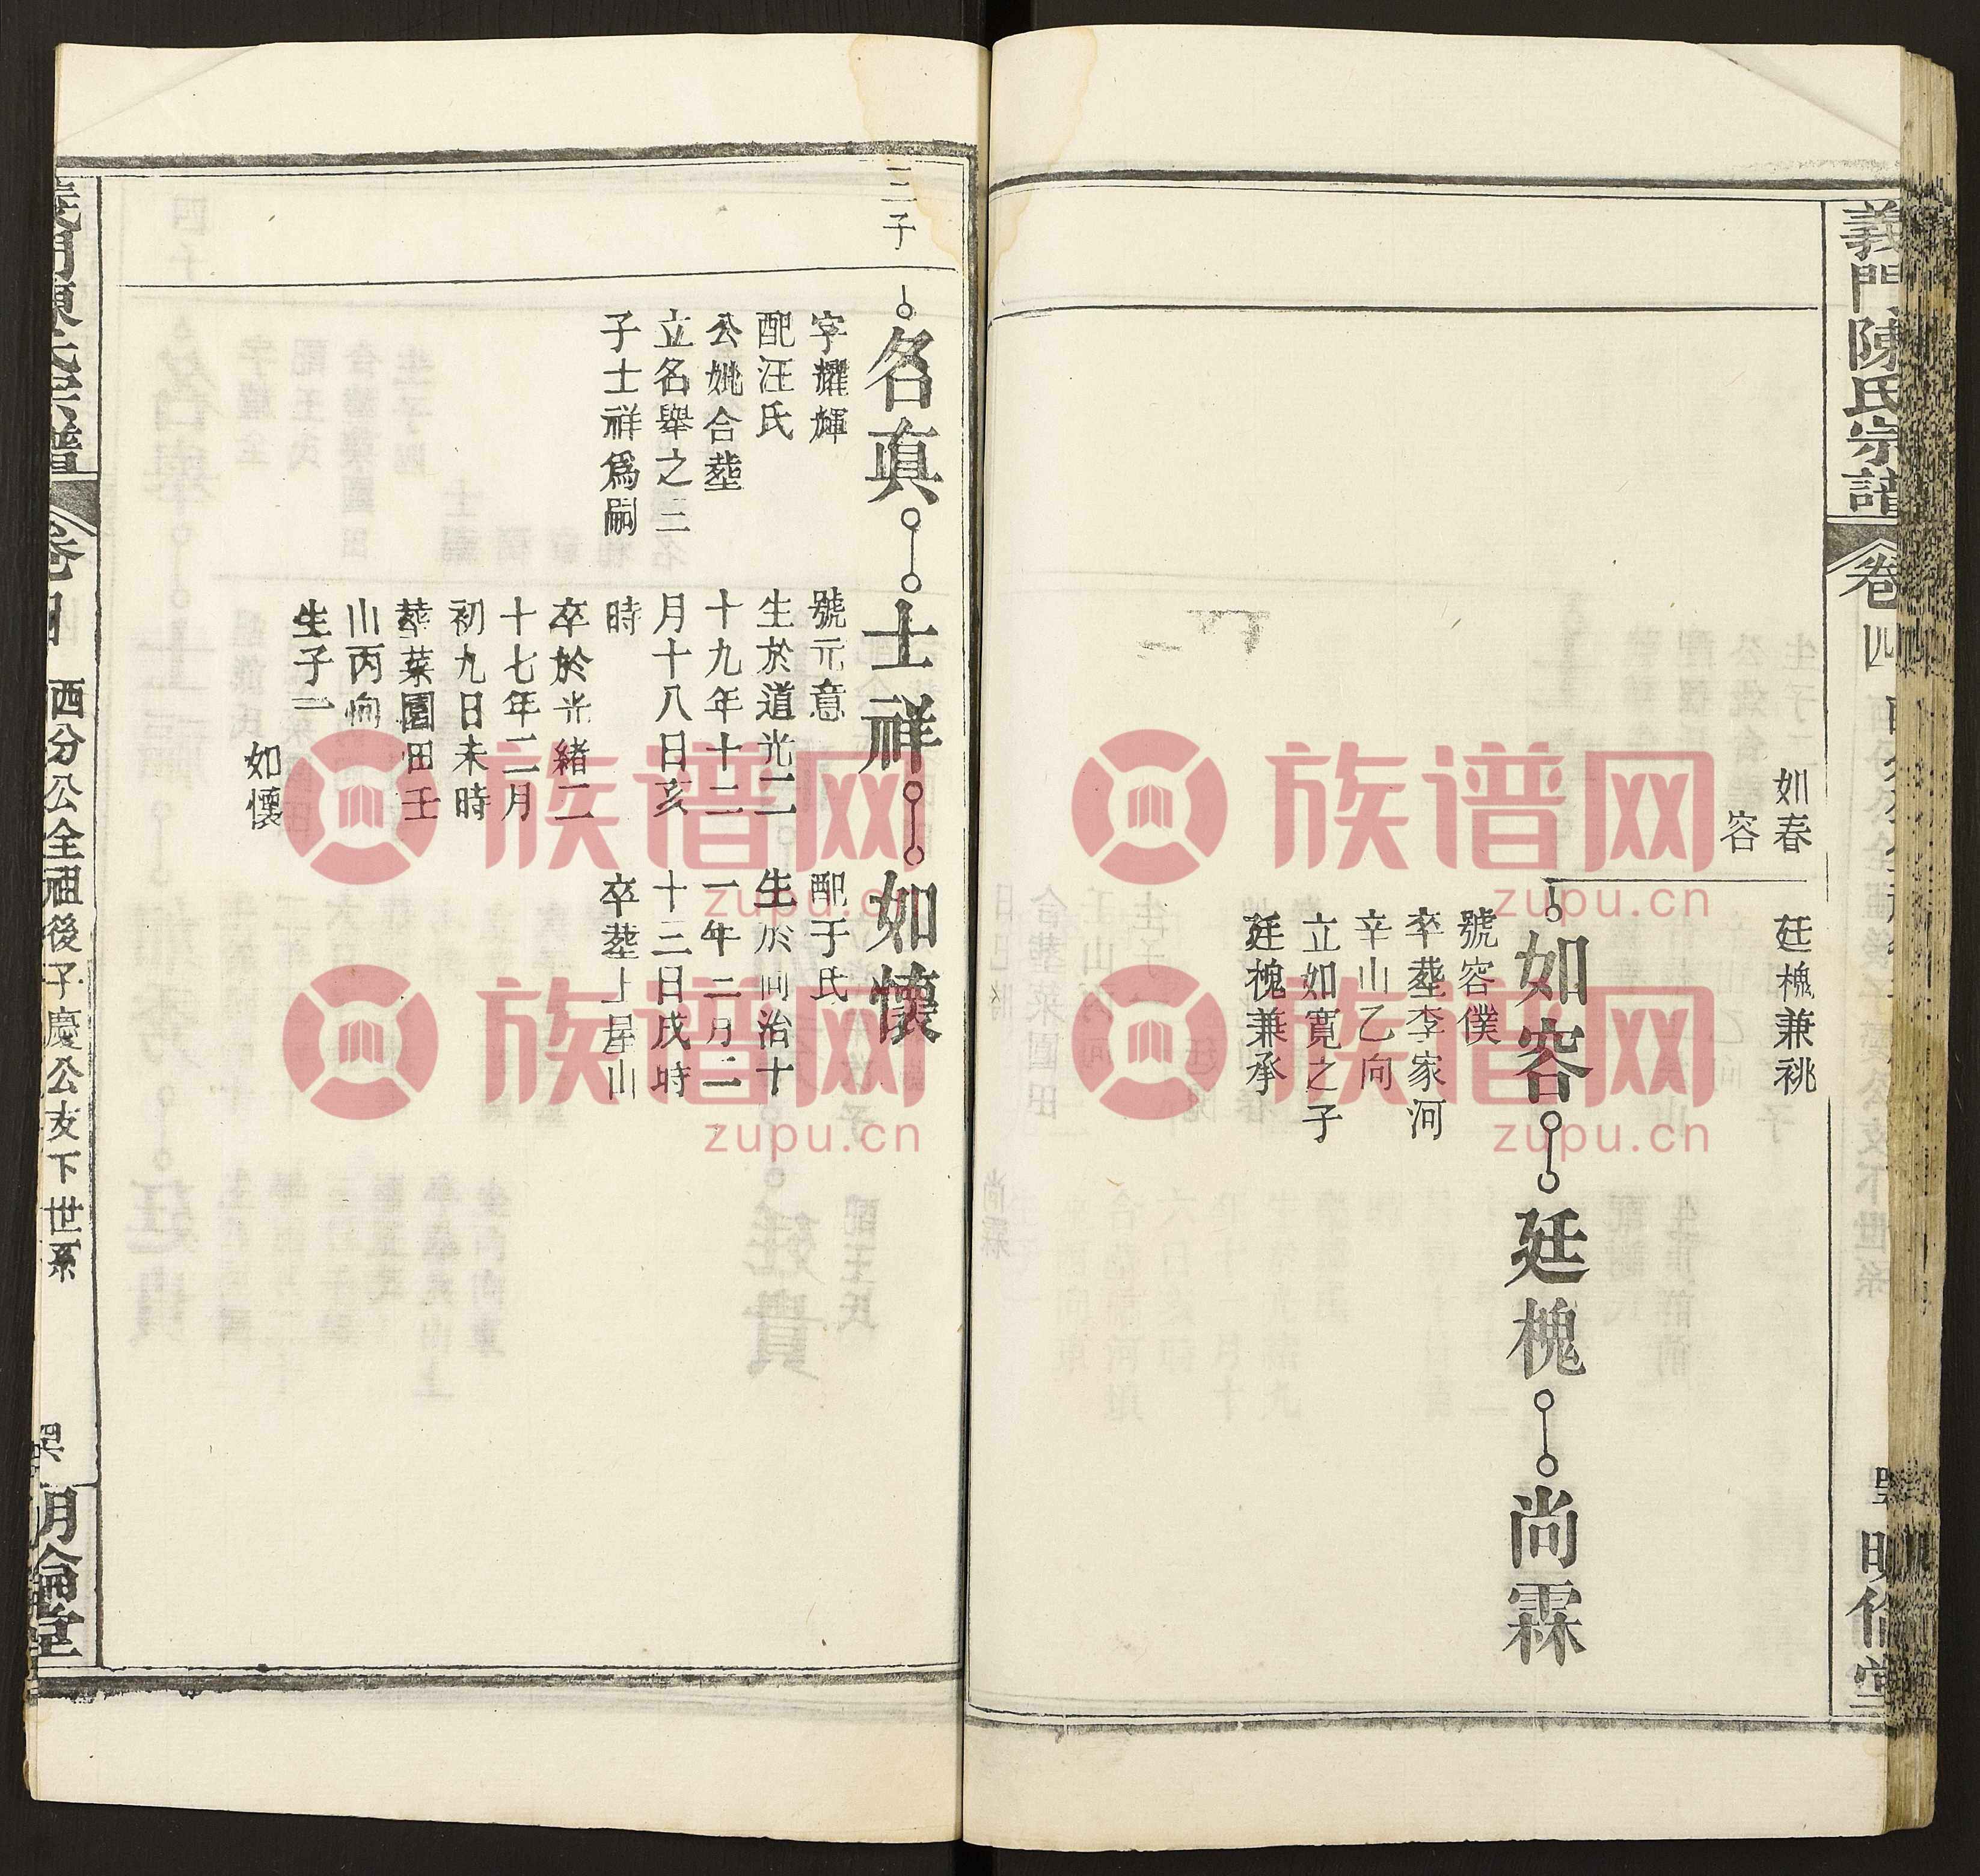 義門陳氏宗譜
卷四
如春
容
廷槐兼祧
如容
廷槐
尚霖
號容僕
卒塟李家河
辛山乙向
立如寬之子
廷槐兼承
三子
名真
士祥
如懷
字耀輝
配汪氏
公妣合塟
立名舉之三
子士祥爲嗣
號元意
生於道光二
十九年十二
月十八日亥
時
卒於光緒二
十七年二月
初九日未時
塟菜園田壬
山丙向
生子一
如懷
配于氏
生於同治十
一年二月二
十三日戌時
卒塟上屋山
西分公全祖後子慶公支下世系
明倫堂
族谱网
zupu.cn
族谱网
zupu.cn
族谱网
zupu.cn
族谱网
zupu.cn